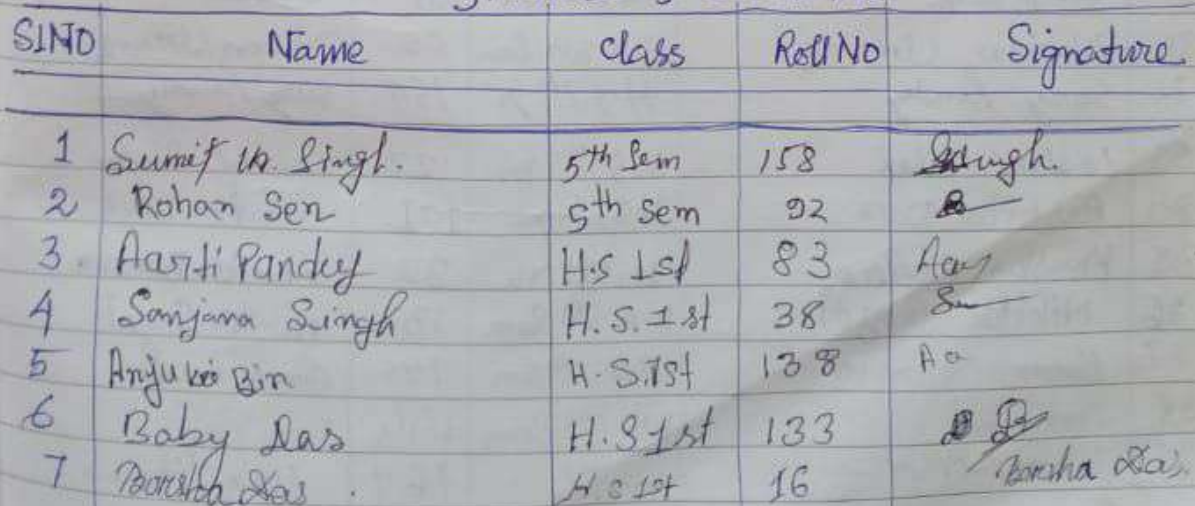 SINO Name Class Roll No Signature
1 Sumit Singh. 5th Sem 158 Singh.
2 Rohan Sen 5th Sem 92
3 Aarti Pandey H.S 1st 83 Aar
4 Sanjana Singh H.S. 1st 38
5 Anju Bin H.S. 1st 138 Aa
6 Baby Das H.S 1st 133 B
7 Borsha Das. H.S 1st 16 Borsha Das.